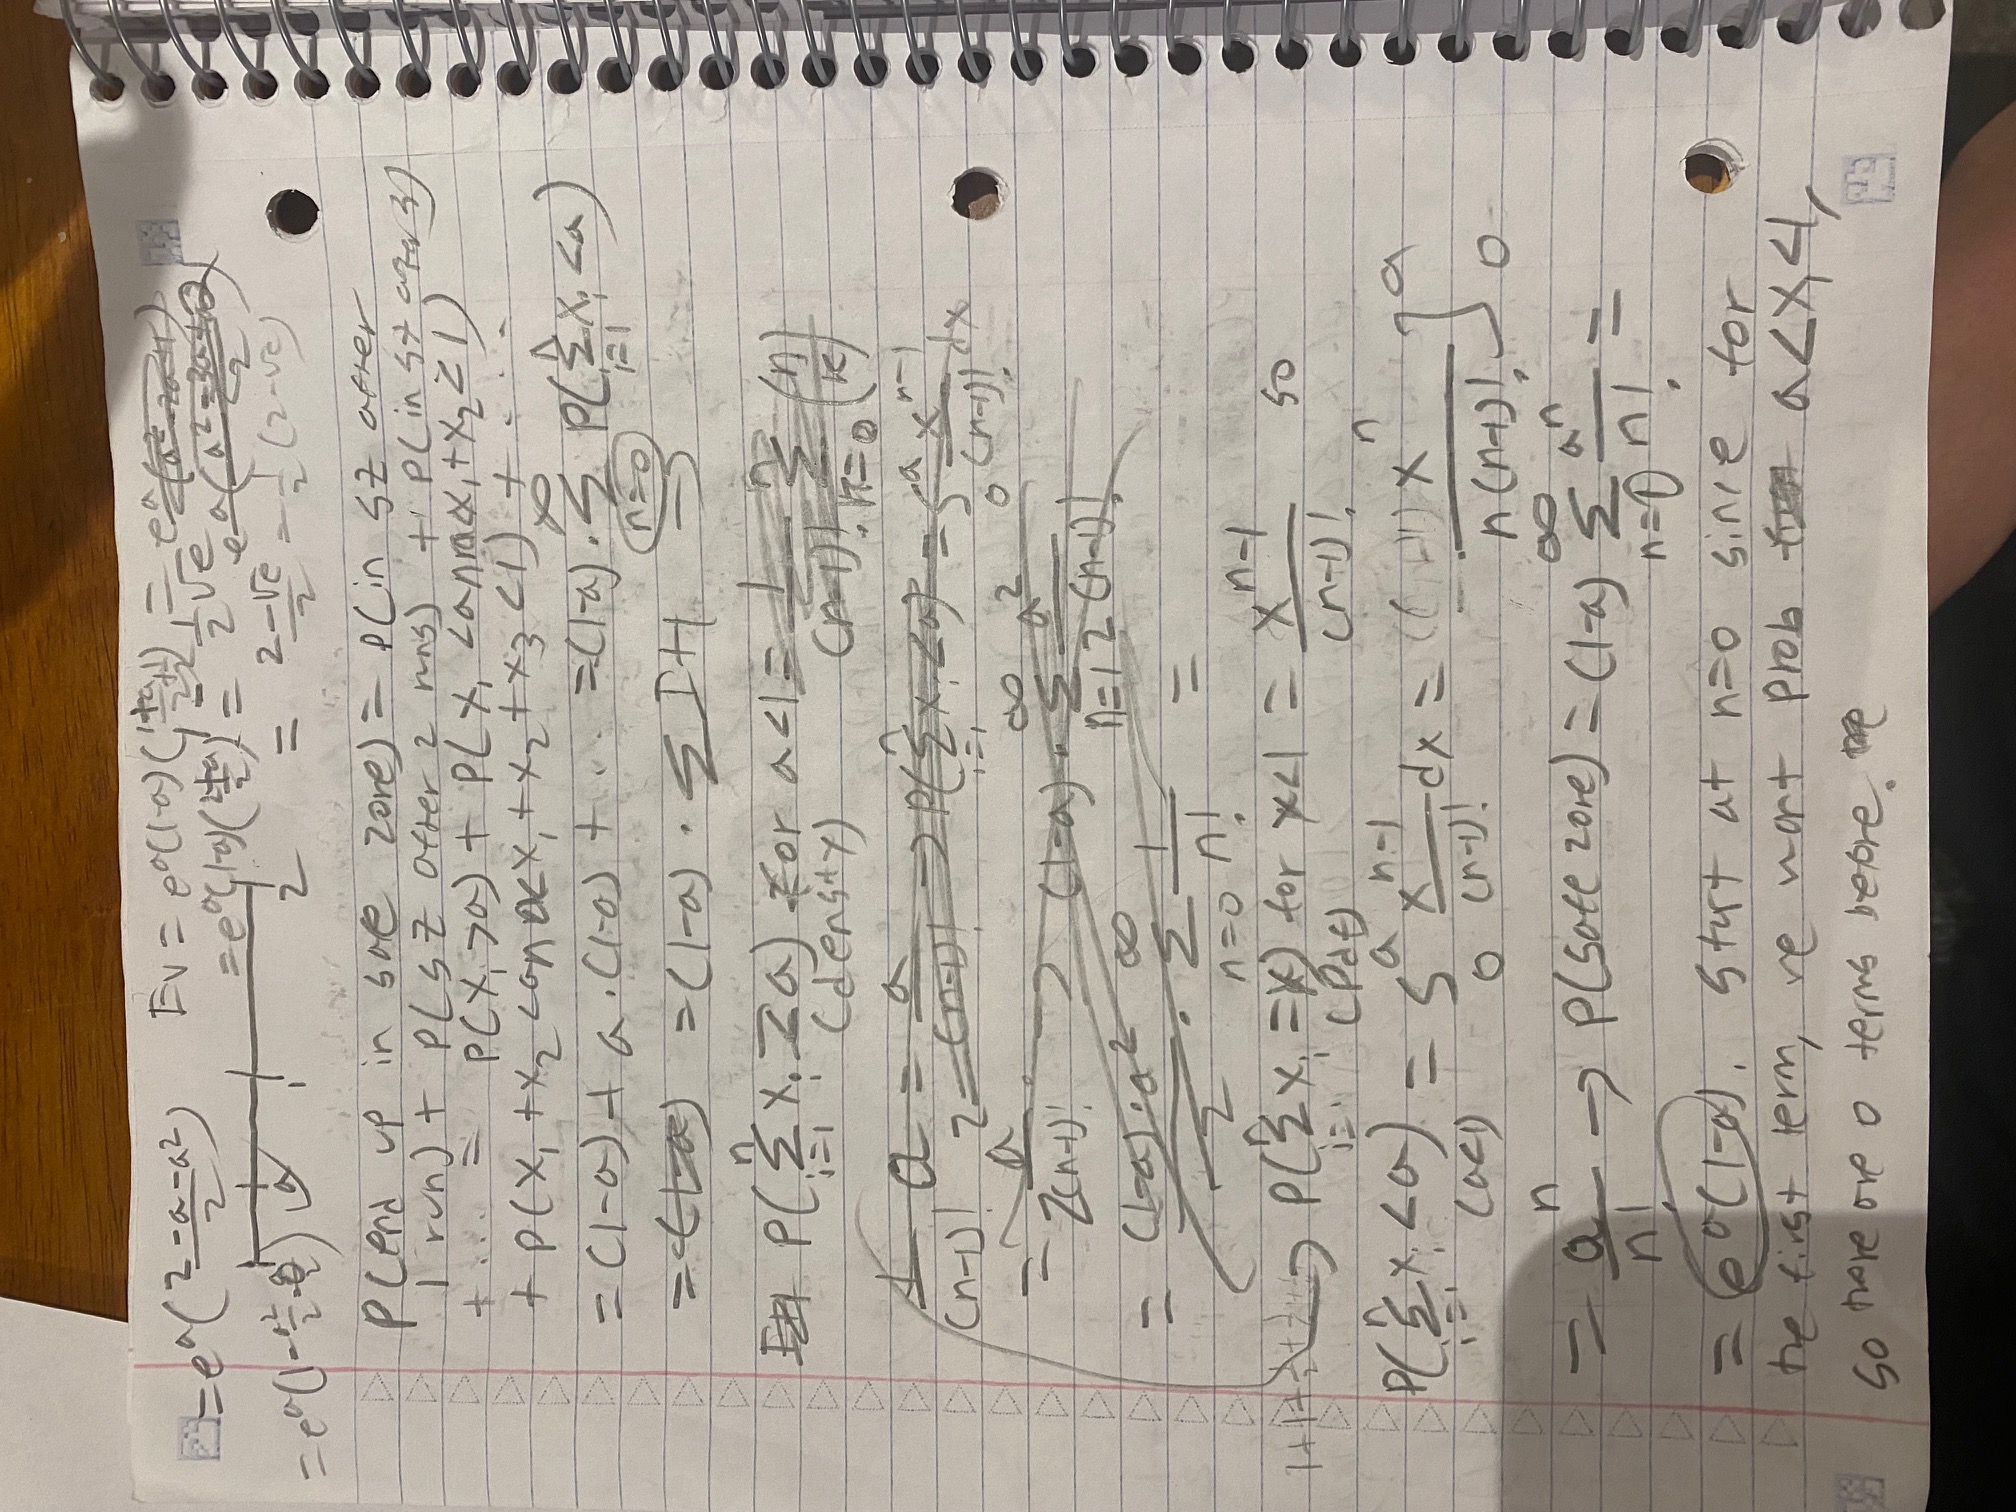 = e^a((2-a-a^2)/2)
EV = e^a(1-a)((1+a)/2 + 1/2) = e^a(a^2-2a+1)
= e^a(1-a)((2+a)/2) = 1/2 √e e^a((a^2-3a+2)/2)
= e^a(1 - a^2/2 - a/2)
0 a 1 2
= (2-√e)/2 = 1/2(2-√e)
P(end up in safe zone) = P(in SZ after
1 run) + P(SZ after 2 runs) + P(in SZ after 3)
+ ... = P(X_1 > a) + P(X_1 < a n a < X_1 + X_2 < 1)
+ P(X_1 + X_2 < a n a < X_1 + X_2 + X_3 < 1) + ...
= (1-a) + a·(1-a) + ... = (1-a)·∑_{n=0}^∞ P(∑_{i=1}^n X_i < a)
= (1-a) = (1-a)·∑ IH →
P(∑_{i=1}^n X_i = a) for a<1 = 1/(n-1)! ∑_{k=0}^n (n k)
(density)
1/(n-1)! a = a/(n-1)! → P(∑_{i=1}^n X_i < a) = ∫_0^a x^{n-1}/(n-1)! dx
= a^2/2(n-1)! → (1-a)·∑_{n=1}^∞ a^2/2(n-1)!
= (1-a)·a^2/2 · ∑_{n=0}^∞ 1/n! =
→ P(∑_{i=1}^n X_i = x) for x<1 = x^{n-1}/(n-1)! so
(pdf)
P(∑_{i=1}^n X_i < a) = ∫_0^a x^{n-1}/(n-1)! dx = x^n/n(n-1)! ]_0^a
(a<1)
= a^n/n! → P(safe zone) = (1-a) ∑_{n=0}^∞ a^n/n! =
= e^a(1-a). Start at n=0 since for
the first term, we want prob a<X_1<1,
so there are 0 terms before.